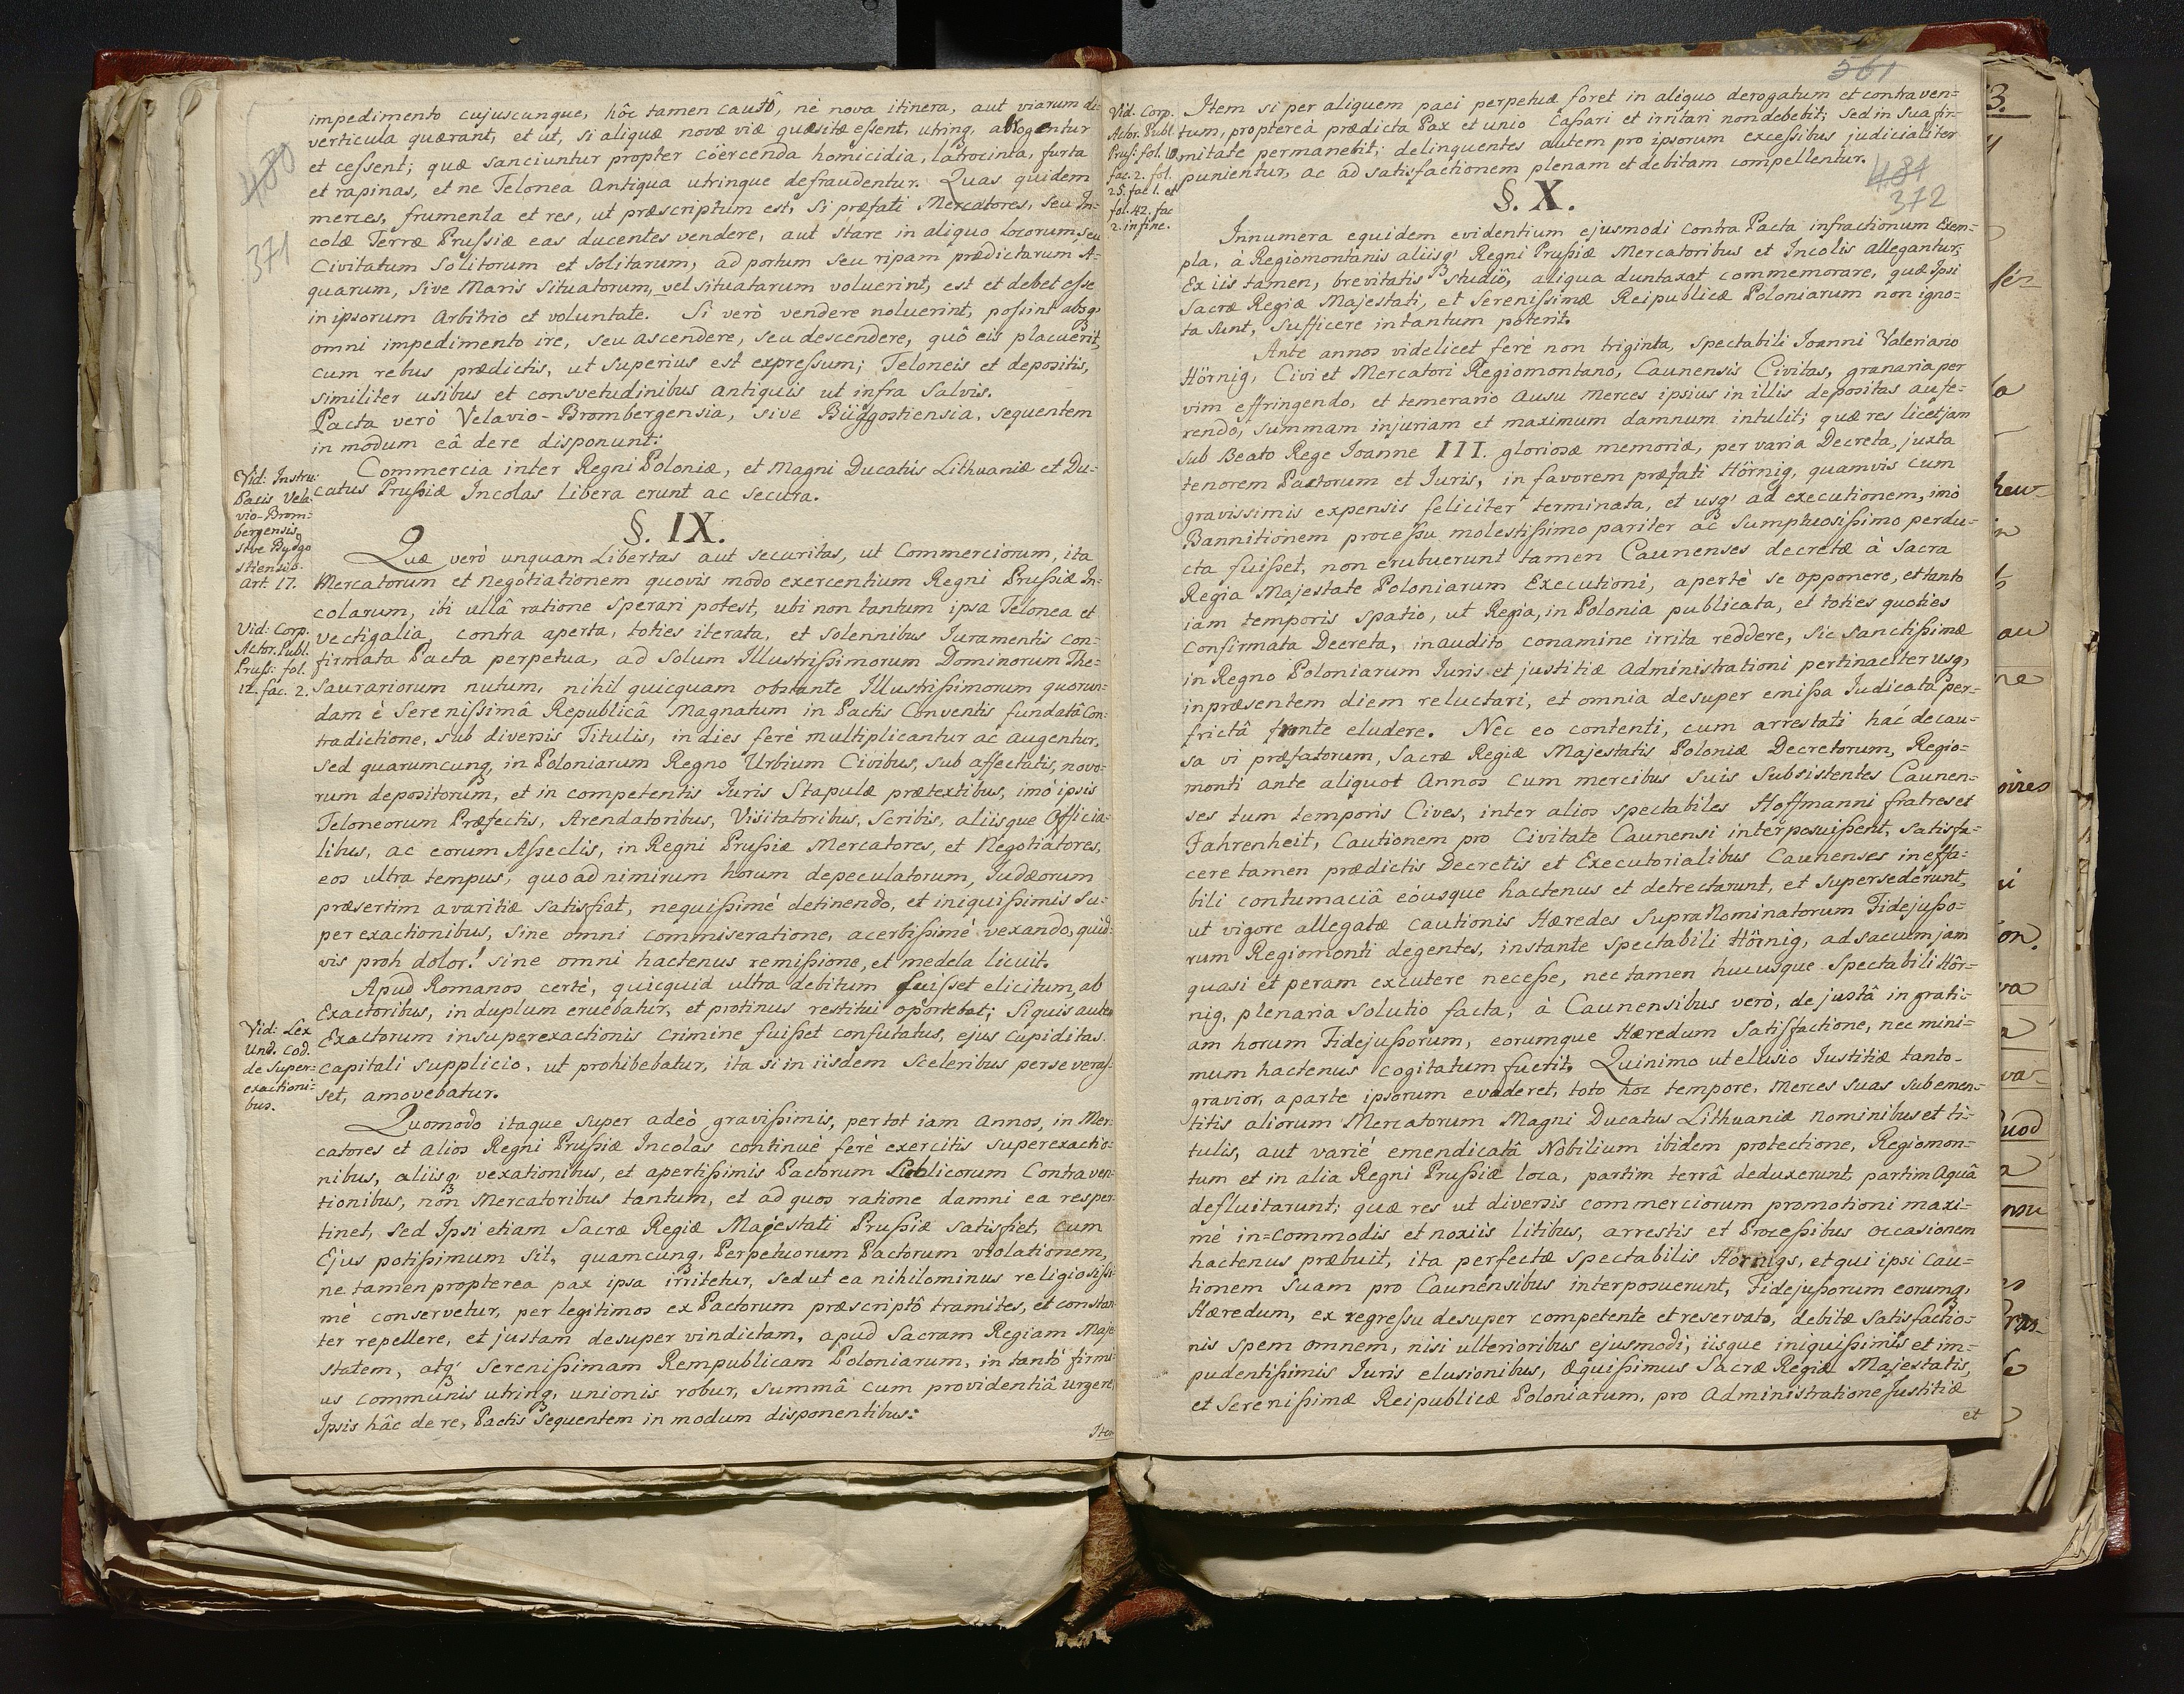 impedimento cujuscunque, hôc tamen cautô, nè nova itinera, aut viarum di=
verticula quærant, et ut, si aliquæ novæ viæ quæsitæ essent, utrinq, abrogentur
et cessent; quæ sanciuntur propter cöercenda homicidia, latrocinia, furta
et rapinas, et ne Telonea Antiqua utrinque defraudentur. Quas quidem
merces, frumenta et res, ut præscriptum est, si præfati Mercatores, seu In=
colæ Terræ Prussiæ eas ducentes vendere, aut stare in aliquo Locorum, seu
Civitatum solitorum et solitarum, ad portum seu ripam prædictarum A=
quarum, sive Maris situatorum, vel situatarum voluerint, est et debet esse
in ipsorum Arbitrio et voluntate. Si verò vendere noluerint, possint absq,
omni impedimento ire, seu ascendere, seu descendere, quô eis placuerit,
cum rebus prædictis, ut superius est expressum; Teloneis et depositis,
similiter usibus et consvetudinibus antiquis ut infra salvis.
Pacta verò Velavio-Brombergensia, sive Büdgostiensia, sequentem
in modum eâ de re disponunt:
Commercia inter Regni Poloniæ, et Magni Ducatûs Lithuaniæ et Du=
catus Prussiæ Incolas libera erunt ac secura.
Vid: Instru:
Pacis Vela:
vio-Brom:
bergensis,
sive Bydgo
stiensis.
art. 17.
§. IX.
Quæ verò unquam Libertas aut securitas, ut Commerciorum, ita
Mercatorum et negotiationem quovis modo exercentium Regni Prussiæ In=
colarum, ibi ullâ ratione sperari potest, ubi non tantum ipsa Telonea et
vectigalia, contra aperta, toties iterata, et solennibus Iuramentis con=
firmata Pacta perpetua, ad solum Illustrissimorum Dominorum The=
saurariorum nutum, nihil quicquam obstante Illustrissimorum quorun=
dam è Serenissimâ Republicâ Magnatum in Pactis Conventis fundatâ Con=
tradictione, sub diversis Titulis, in dies ferè multiplicantur ac augentur,
sed quarumcunq, in Poloniarum Regno Urbium Civibus, sub affectatis, novo=
rum depositorum, et in competentis Iuris Stapulæ prætextibus, imò ipsis
Teloneorum Præfectis, Arendatoribus, Visitatoribus, Scribis, aliisque Officia=
libus, ac eorum Asseclis, in Regni Prussiæ Mercatores, et Negotiatores,
eos ultra tempus, quoad nimirum horum depeculatorum, Iudæorum
præsertim avaritiæ satisfiat, nequissimè detinendo, et iniquissimis su=
perexactionibus, sine omni commiseratione, acerbissimè vexando, quid=
vis proh dolor! sine omni hactenus remissione, et medela licuit.
Vid: Corp.
Actor. Publ.
Pruss: fol.
12. fac. 2.
Apud Romanos certè, quicquid ultra debitum fuisset elicitum, ab
Exactoribus, in duplum eruebatur, et protinus restitui oportebat; Siquis autem
Exactorum in superexactionis crimine fuisset confutatus, ejus cupiditas
capitali supplicio, ut prohibebatur, ita si in iisdem sceleribus perseveras=
set, amovebatur.
Vid: Lex
Und. Cod.
de Super=
exactioni=
bus.
Quomodo itaque super adeò gravissimis, per tot iam annos, in Mer=
catores et alios Regni Prussiæ Incolas continuè ferè exercitis superexactio=
nibus, aliisq, vexationibus, et apertissimis Pactorum Publicorum Contraven=
tionibus, non Mercatoribus tantum, et ad quos ratione damni ea res per=
tinet, sed Ipsi etiam Sacræ Regiæ Majestati Prussiæ satisfiet, cum
Ejus potissimum sit, quamcunq, Perpetuorum Pactorum violationem,
ne tamen propterea pax ipsa irritetur, sed ut ea nihilominus religiosissi=
mè conservetur, per legitimos ex Pactorum præscriptô tramites, et constan=
ter repellere, et justam desuper vindictam, apud Sacram Regiam Maje=
statem, atq, Serenissimam Rempublicam Poloniarum, in tantò firmi=
us communis utrinq, unionis robur, summâ cum providentiâ urgere
Ipsis hâc de re, Pactis sequentem in modum disponentibus:
Item
480
371
561
Item si per aliquem paci perpetuæ foret in aliquo derogatum et contraven=
tum, propterea prædicta Pax et unio Cassari et irritari non debebit; sed in sua fir=
mitate permanebit; delinquentes autem pro ipsorum excessibus judicialiter
punientur, ac ad satisfactionem plenam et debitam compellentur.
Vid. Corp.
Actor. Publ.
Prus: fol. 10.
fac. 2. fol.
25. fac 1. et
fol. 42. fac
2. in fine.
481
372
§. X.
Innumera equidem evidentium ejusmodi contra Pacta infractionum Exem=
pla, à Regiomontanis aliisq, Regni Prussiæ Mercatoribus et Incolis allegantur;
Ex iis tamen, brevitatis studiô, aliqua duntaxat commemorare, quæ Ipsi
Sacræ Regiæ Majestati, et Serenissimæ Reipublicæ Poloniarum non igno=
ta sunt, sufficere intantum poterit.
Ante annos videlicet ferè non triginta, spectabili Ioanni Valeriano
Hörnig, Civi et Mercatori Regiomontano, Caunensis Civitas, granaria per
vim effringendo, et temerario ausu merces ipsius in illis depositas aufe=
rendo, summam injuriam et maximum damnum intulit; quæ res licet jam
sub Beato Rege Ioanne III. gloriosæ memoriæ, per varia Decreta, juxta
tenorem Pactorum et Iuris, in favorem præfati Hörnig, quamvis cum
gravissimis expensis feliciter terminata, et usq, ad executionem, imò
Bannitionem processu molestissimo pariter ac sumptuosissimo perdu=
cta fuisset, non erubuerunt tamen Caunenses decretæ à Sacra
Regia Majestate Poloniarum Executioni, apertè se opponere, et tanto
iam temporis spatio, ut Regia, in Polonia publicata, et toties quoties
confirmata Decreta, inaudito conamine irrita reddere, sic sanctissimæ
in Regno Poloniarum Iuris et justitiæ administrationi pertinaciter usq,
in præsentem diem reluctari, et omnia desuper emissa Iudicata per=
frictâ fronte eludere. Nec eo contenti, cum arrestati hac de cau=
sa vi præfatorum, Sacræ Regiæ Majestatis Poloniæ Decretorum, Regio=
monti ante aliquot Annos cum mercibus suis subsistentes Caunen=
ses tum temporis Cives, inter alios spectabiles Hoffmanni fratres et
Fahrenheit, Cautionem pro Civitate Caunensi interposuissent, satisfa=
cere tamen prædictis Decretis et Executorialibus Caunenses ineffa=
bili contumaciâ eòusque hactenus et detrectarunt, et supersederunt,
ut vigore allegatæ cautionis Hæredes supra Nominatorum Fidejusso=
rum Regiomonti degentes, instante spectabili Hörnig, ad sacum jam
quasi et peram excutere necesse, nec tamen hucusque spectabili Hör=
nig, plenaria solutio facta, à Caunensibus verò, de justâ in grati=
am horum Fidejussorum, eorumque Hæredum satisfactione, nec mini=
mum hactenus cogitatum fuerit. Quinimo ut elusio Iustitiæ tanto
gravior, a parte ipsorum evaderet, toto hoc tempore, Merces suas sub emen=
titis aliorum Mercatorum Magni Ducatus Lithuaniæ nominibus et ti=
tulis, aut variè emendicatâ Nobilium ibidem protectione, Regiomon=
tum et in alia Regni Prussiæ loca, partim terrâ deduxerunt, partim aquâ
defluitarunt; quæ res ut diversis commerciorum promotioni maxi=
mè in=commodis et noxiis litibus, arrestis et Processibus occasionem
hactenus præbuit, ita perfectæ spectabilis Hörnigs, et qui ipsi cau=
tionem suam pro Caunensibus interposuerunt, Fidejussorum eorumq,
Hæredum, ex regressu desuper competente et reservato, debitæ satisfactio=
nis spem omnem, nisi ulterioribus ejusmodi, iisque iniquissimis et im=
pudentissimis Iuris elusionibus, Æquissimus Sacræ Regiæ Majestatis,
et Serenissimæ Reipublicæ Poloniarum, pro Administratione Justitiæ
et